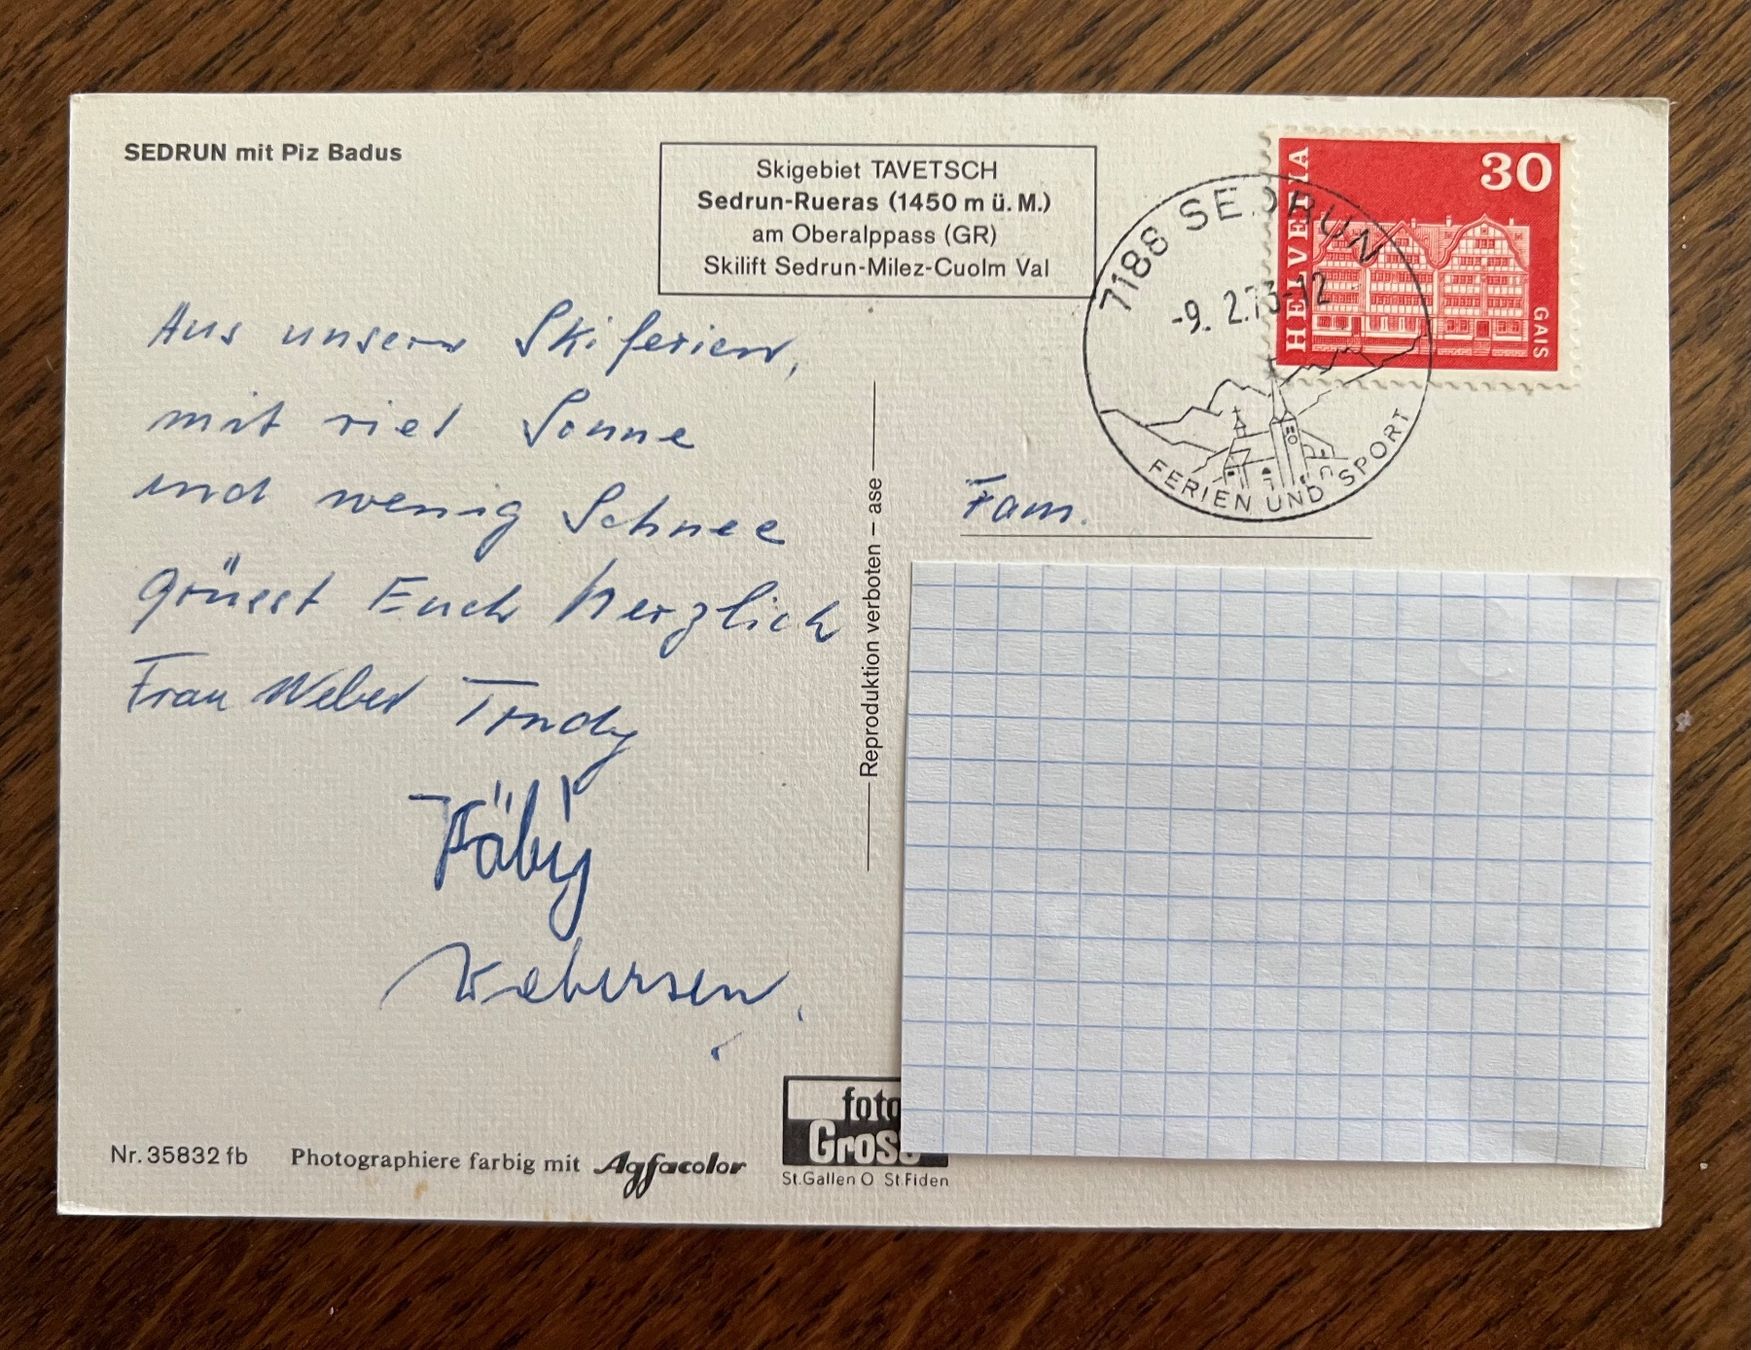 SEDRUN mit Piz Badus
Skigebiet TAVETSCH
Sedrun-Rueras (1450 m ü. M.)
am Oberalppass (GR)
Skilift Sedrun-Milez-Cuolm Val
HELVETIA
30
GAIS
7188 SEDRUN
-9. 2.73-12
FERIEN UND SPORT
Aus unsern Skiferien,
mit viel Sonne
und wenig Schnee
grüsst Euch herzlich
Frau Weber Trudy
Fam.
Reproduktion verboten – ase
Nr. 35832 fb
Photographiere farbig mit Agfacolor
foto
Gross
St.Gallen O St.Fiden